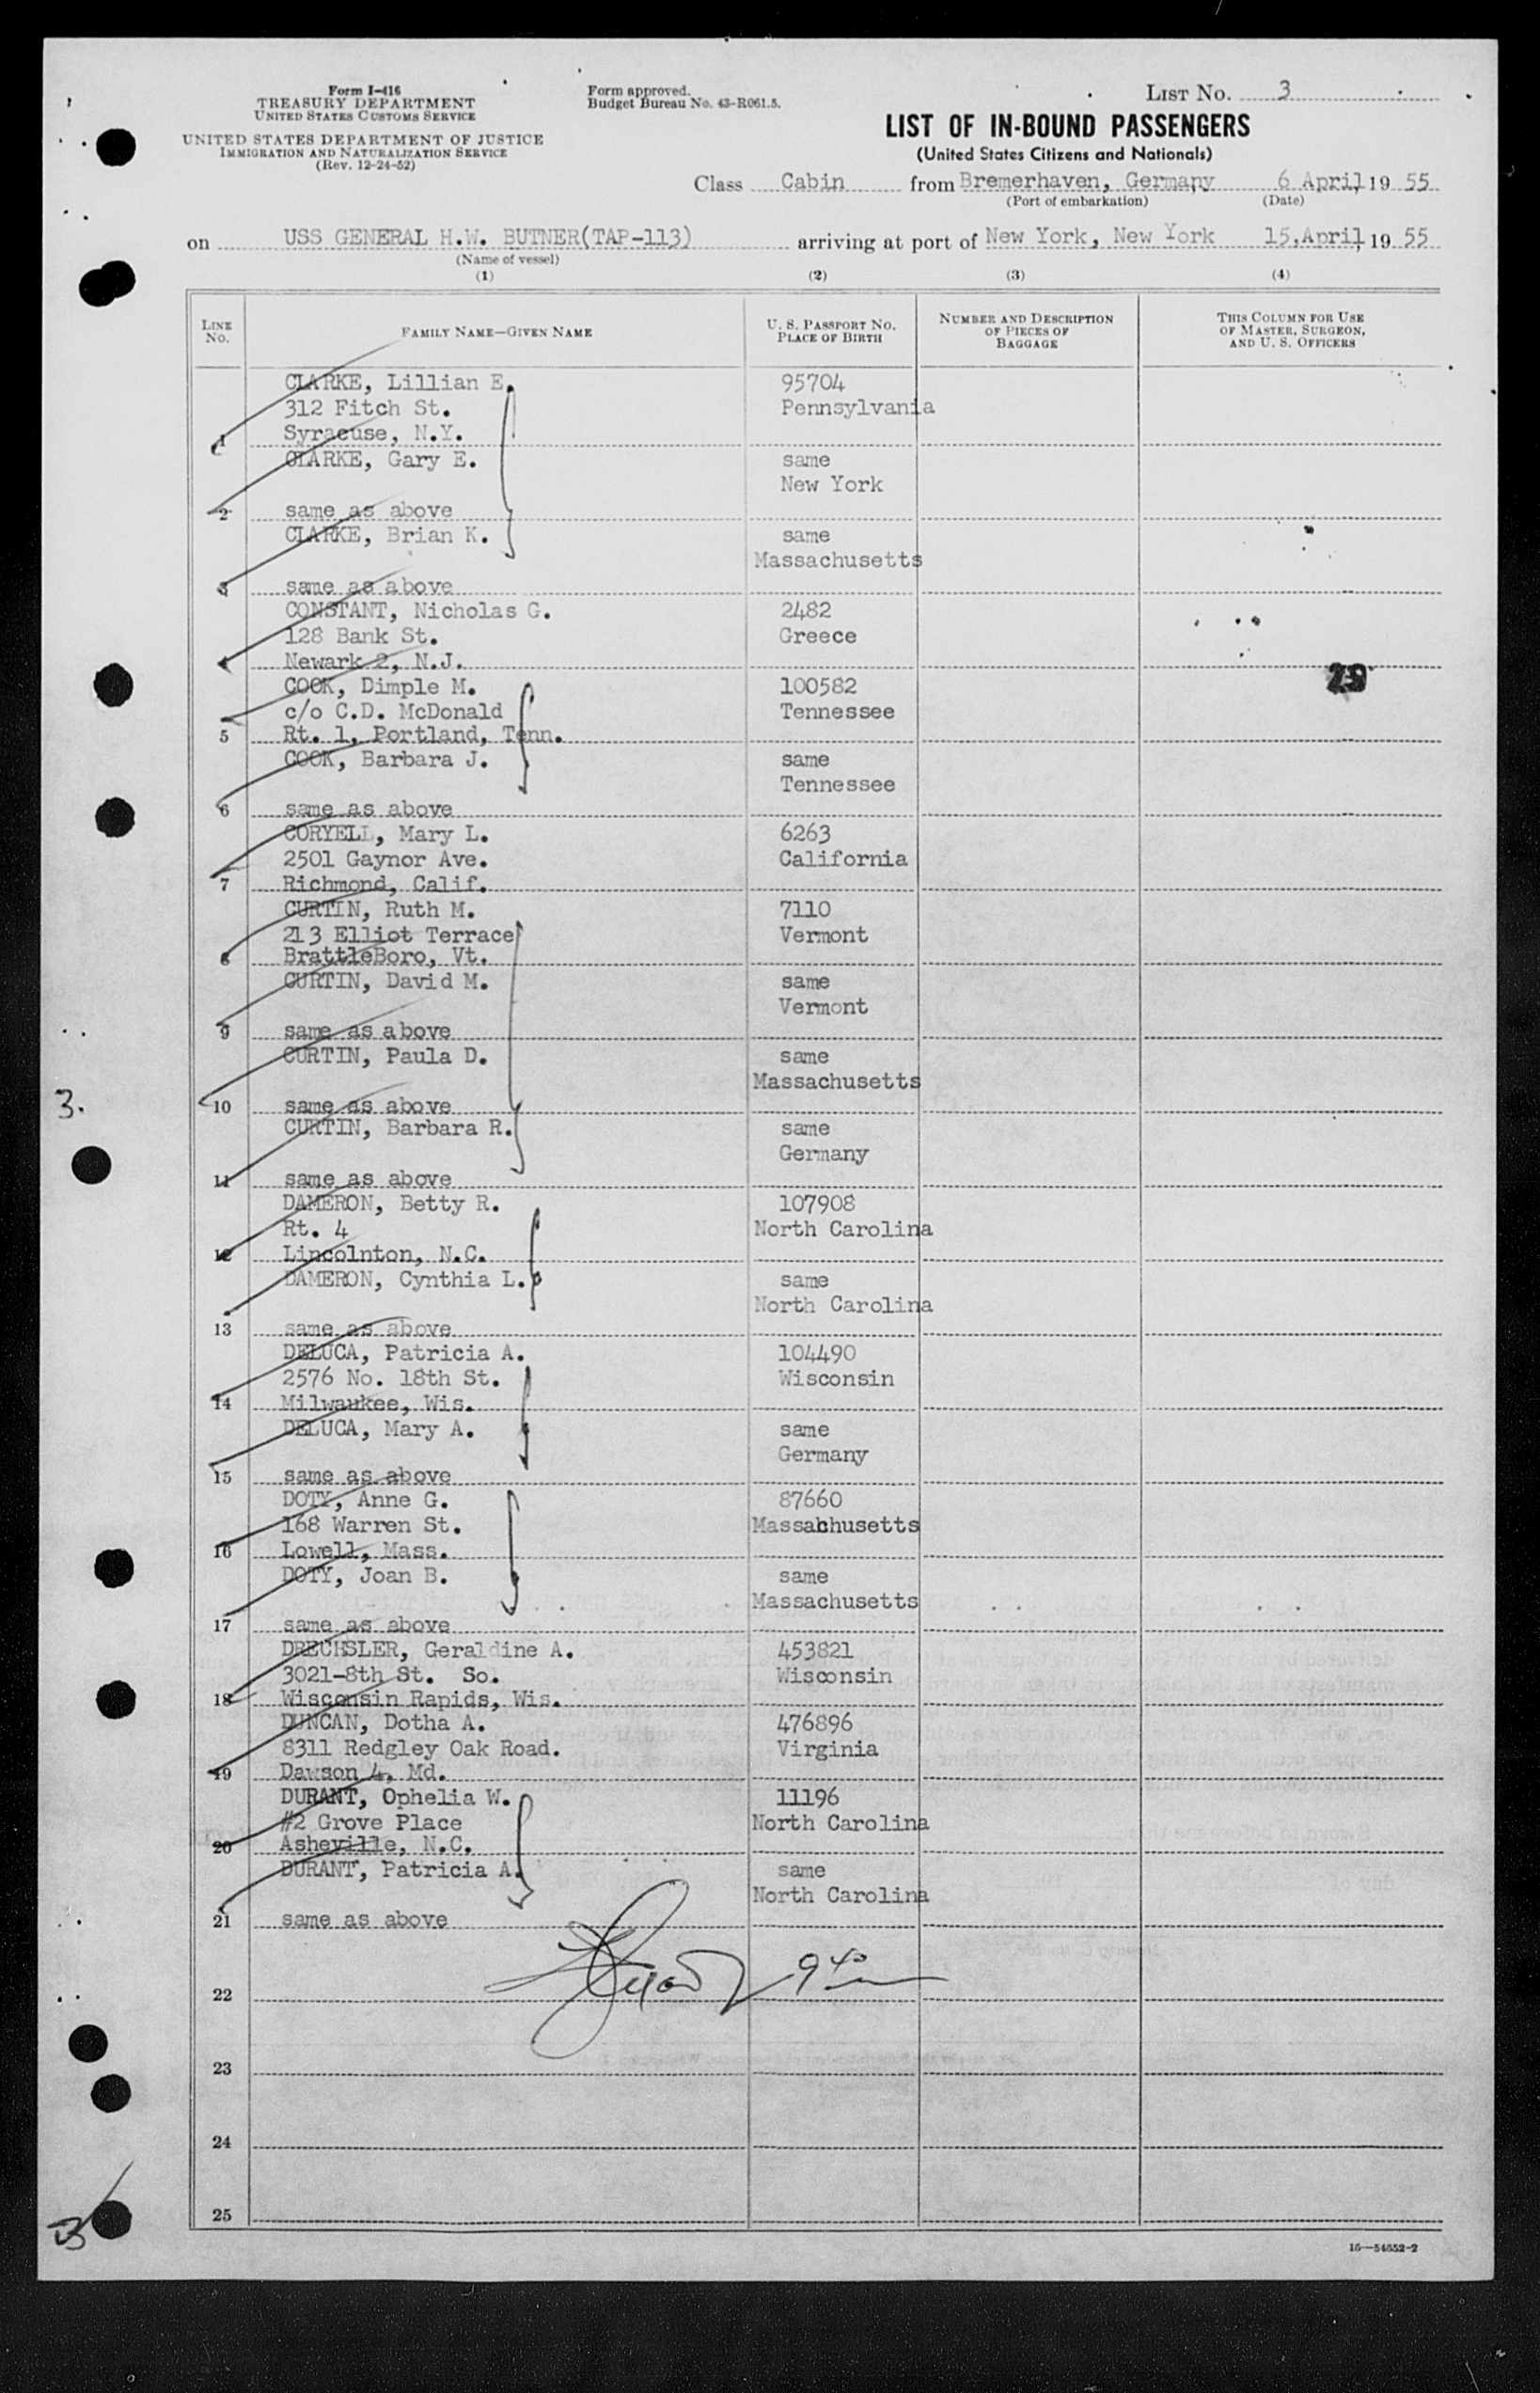 Form I-416
TREASURY DEPARTMENT
UNITED STATES CUSTOMS SERVICE
UNITED STATES DEPARTMENT OF JUSTICE
IMMIGRATION AND NATURALIZATION SERVICE
(Rev. 12-24-52)
Form approved.
Budget Bureau No. 43-R061.5.
LIST NO. 3
LIST OF IN-BOUND PASSENGERS
(United States Citizens and Nationals)
Class Cabin from Bremerhaven, Germany 6 April, 19 55
(Port of embarkation) (Date)
on USS GENERAL H.W. BUTNER(TAP-113) arriving at port of New York, New York 15, April, 19 55
(Name of vessel)
(1) (2) (3) (4)
LINE NO. FAMILY NAME—GIVEN NAME U. S. PASSPORT NO. PLACE OF BIRTH NUMBER AND DESCRIPTION OF PIECES OF BAGGAGE THIS COLUMN FOR USE OF MASTER, SURGEON, AND U. S. OFFICERS
CLARKE, Lillian E. 95704
312 Fitch St. Pennsylvania
1 Syracuse, N.Y.
CLARKE, Gary E. same
New York
2 same as above
CLARKE, Brian K. same
Massachusetts
3 same as above
CONSTANT, Nicholas G. 2482
128 Bank St. Greece
4 Newark 2, N.J.
29
COOK, Dimple M. 100582
c/o C.D. McDonald Tennessee
5 Rt. 1, Portland, Tenn.
COOK, Barbara J. same
Tennessee
6 same as above
CORYELL, Mary L. 6263
2501 Gaynor Ave. California
7 Richmond, Calif.
CURTIN, Ruth M. 7110
213 Elliot Terrace Vermont
8 BrattleBoro, Vt.
CURTIN, David M. same
Vermont
9 same as above
CURTIN, Paula D. same
Massachusetts
3. 10 same as above
CURTIN, Barbara R. same
Germany
11 same as above
DAMERON, Betty R. 107908
Rt. 4 North Carolina
12 Lincolnton, N.C.
DAMERON, Cynthia L. same
North Carolina
13 same as above
DELUCA, Patricia A. 104490
2576 No. 18th St. Wisconsin
14 Milwaukee, Wis.
DELUCA, Mary A. same
Germany
15 same as above
DOTY, Anne G. 87660
168 Warren St. Massahhusetts
16 Lowell, Mass.
DOTY, Joan B. same
Massachusetts
17 same as above
DRECHSLER, Geraldine A. 453821
3021-8th St. So. Wisconsin
18 Wisconsin Rapids, Wis.
DUNCAN, Dotha A. 476896
8311 Redgley Oak Road. Virginia
19 Dawson 4, Md.
DURANT, Ophelia W. 11196
#2 Grove Place North Carolina
20 Asheville, N.C.
DURANT, Patricia A. same
North Carolina
21 same as above
22
23
24
25
3
16—54652-2